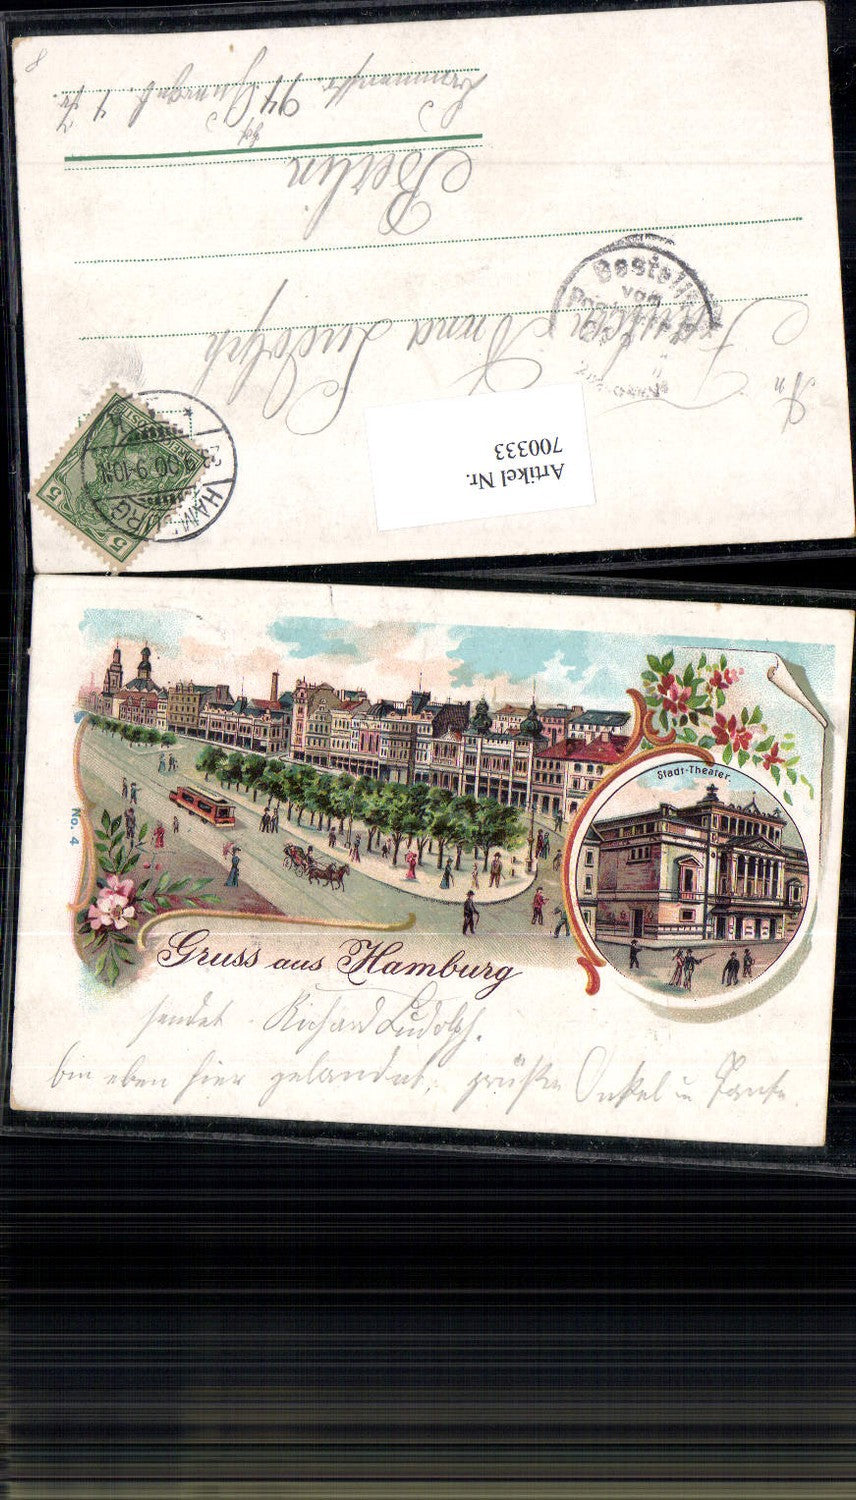 An
Fräulein Anna Ludolph
Berlin
Artikel Nr.
700333
Bestellt
vom
HAMBURG
23.9.00.9-10
5
5
Stadt-Theater.
No. 4
Gruss aus Hamburg
sendet Richard Ludolph.
bin eben hier gelandet, grüße Onkel u Tante.